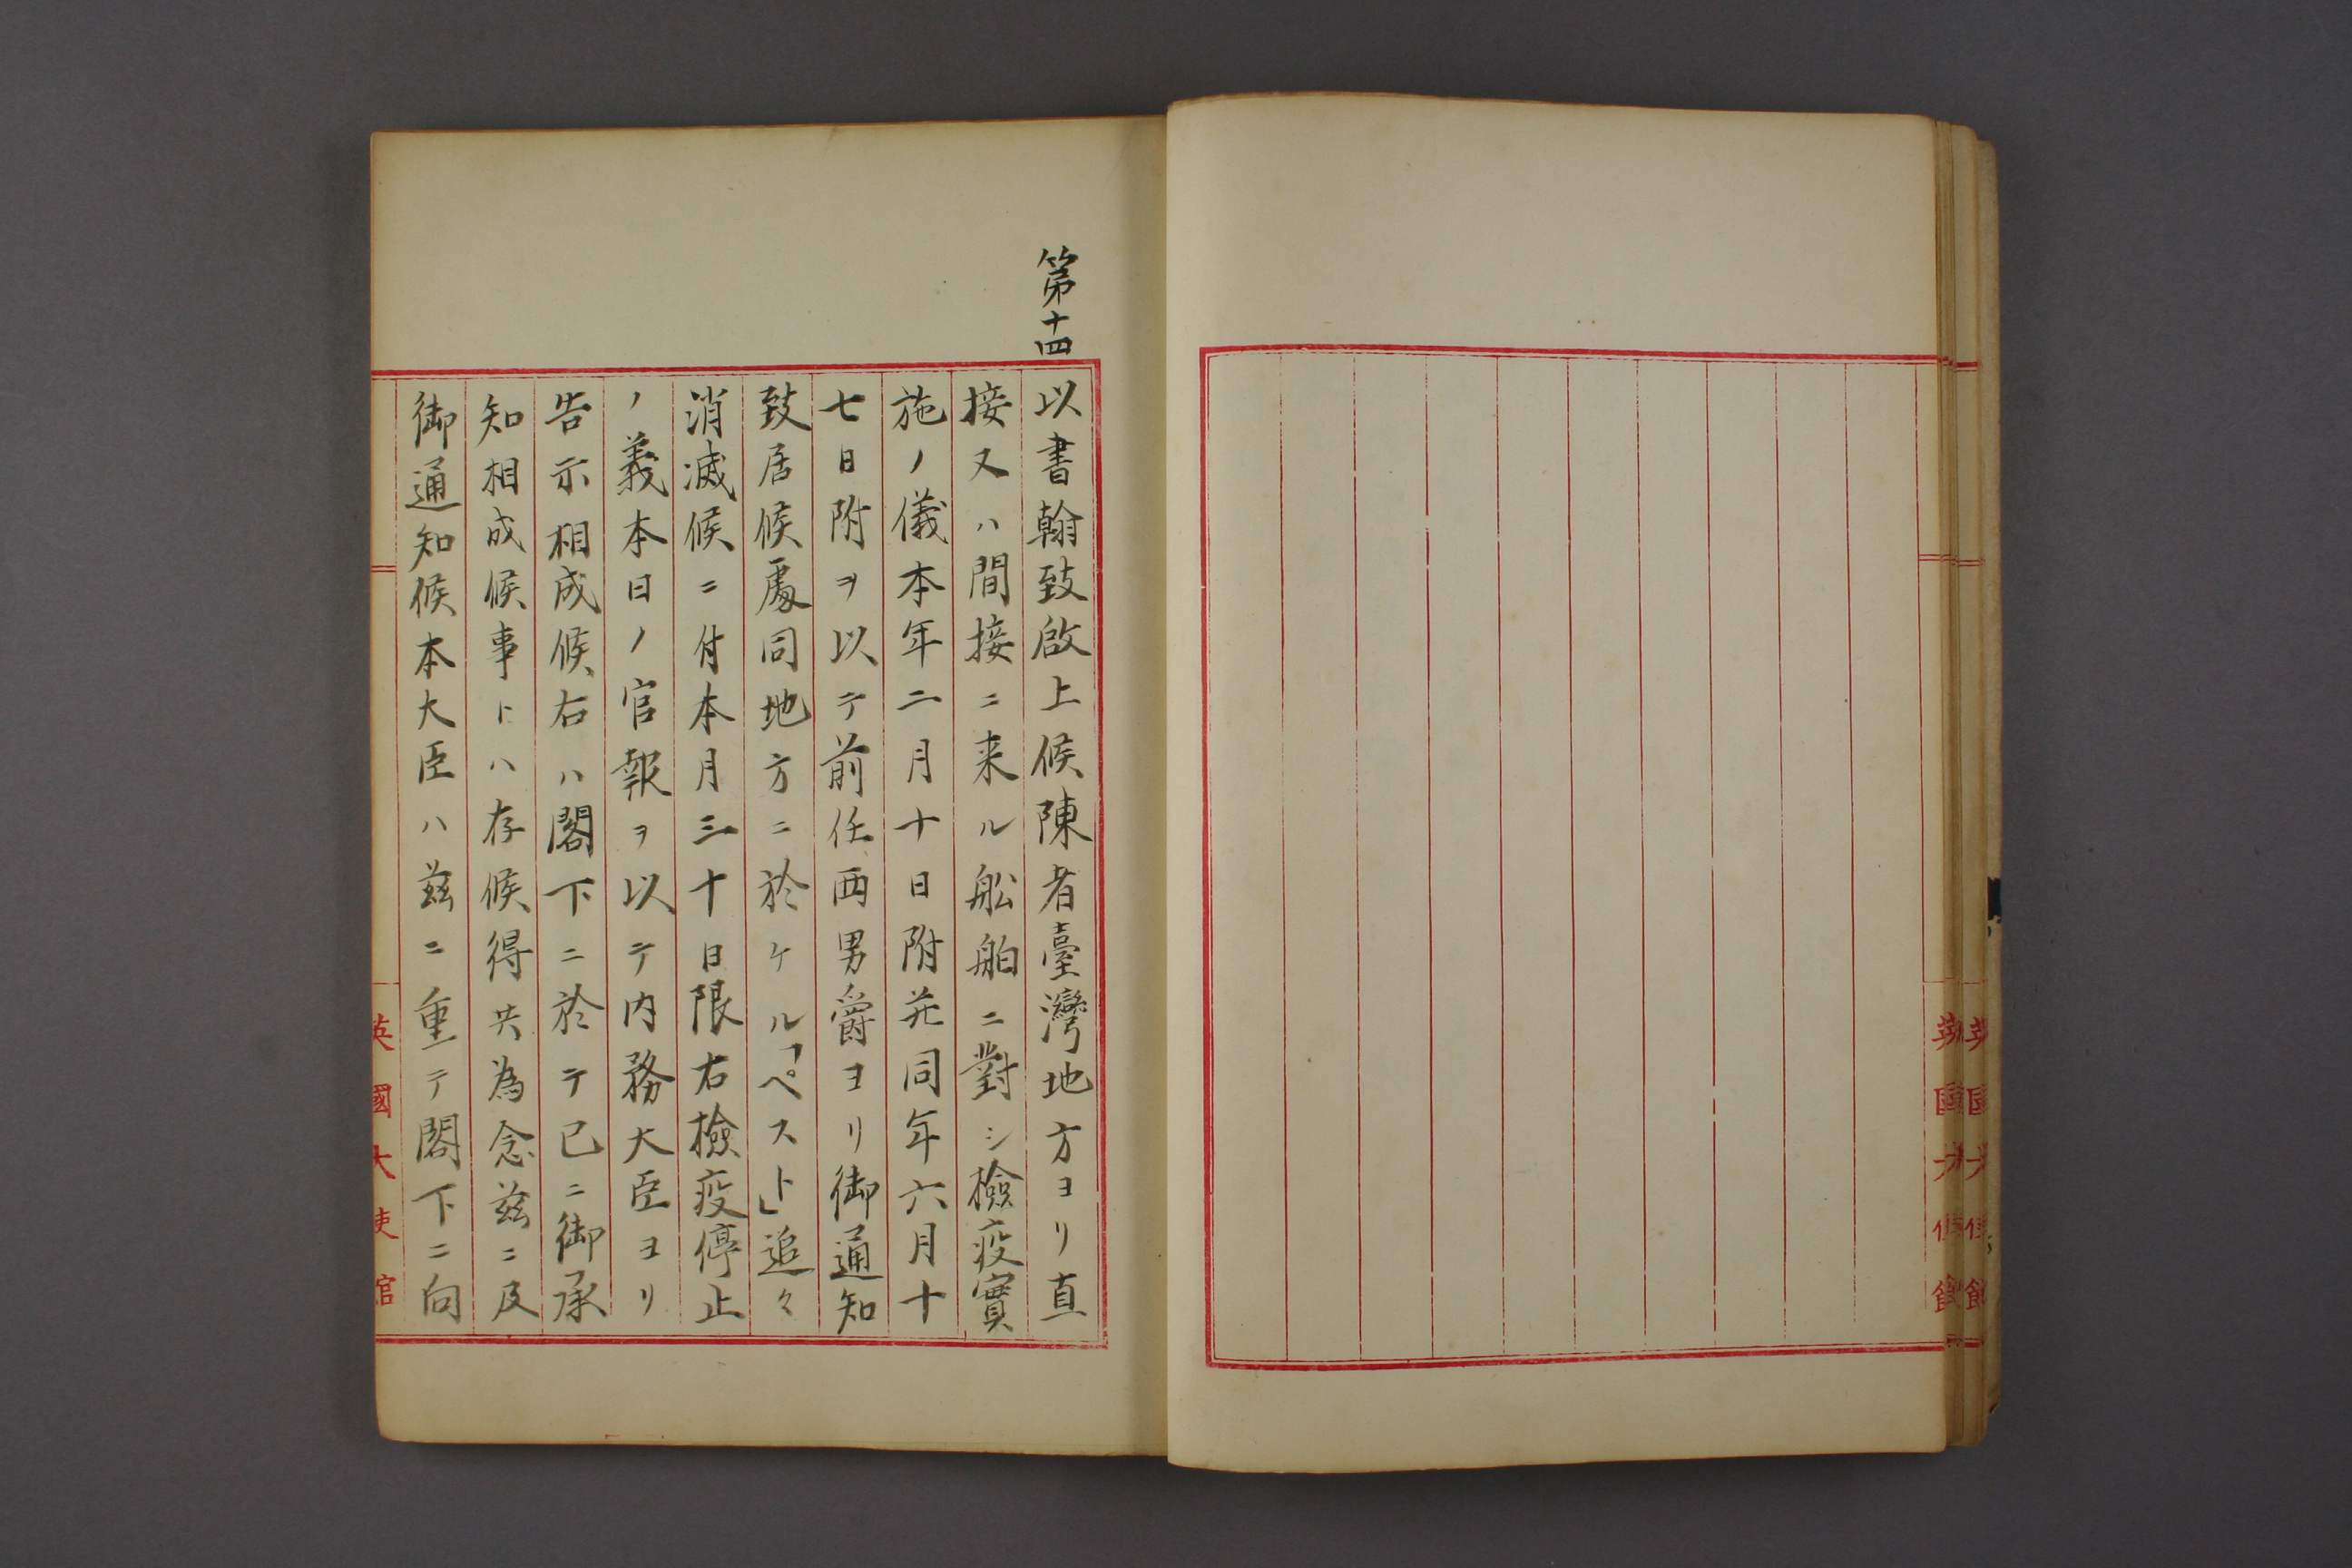 第十四
以書翰致啟上候陳者臺灣地方ヨリ直
接又ハ間接ニ来ル舩舶ニ對シ檢疫實
施ノ儀本年二月十日附並同年六月十
七日附ヲ以テ前任西男爵ヨリ御通知
致居候處同地方ニ於ケル「ペスト」追々
消滅候ニ付本月三十日限右檢疫停止
ノ義本日ノ官報ヲ以テ内務大臣ヨリ
告示相成候右ハ閣下ニ於テ已ニ御承
知相成候事トハ存候得共為念茲ニ及
御通知候本大臣ハ茲ニ重テ閣下ニ向
英國大使館